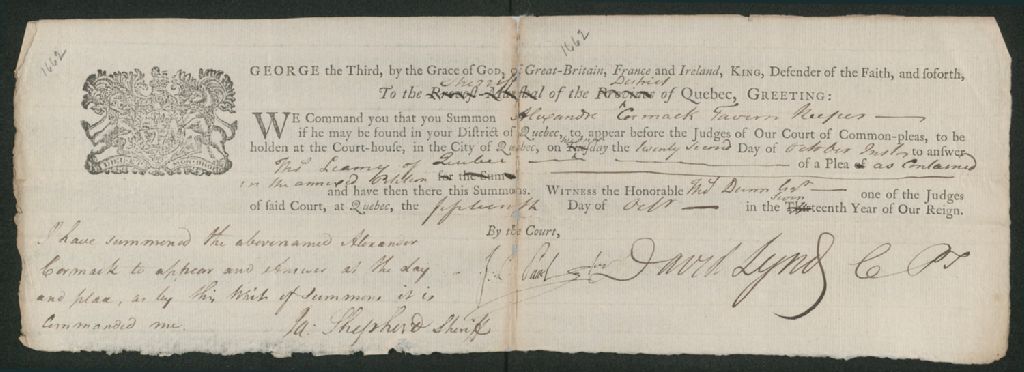 1662
1662
GEORGE the Third, by the Grace of GOD, of Great-Britain, France and Ireland, KING, Defender of the Faith, and soforth,
Sheriff District
To the Provost-Marshal of the Province of Quebec, GREETING:
WE Command you that you Summon Alexandre Cormack Tavern Keeper
if he may be found in your District of Quebec, to appear before the Judges of Our Court of Common-pleas, to be
holden at the Court-house, in the City of Quebec, on day the twenty Second Day of October Inst to answer
Thos Leamy of Quebec of a Plea as Contained
in the annexed for the Sum
and have then there this Summons. WITNESS the Honorable Thos Dunn Esqr one of the Judges
Seven
of said Court, at Quebec, the fifteenth Day of Octr in the teenth Year of Our Reign.
By the Court,
I have summoned the abovenamed Alexander
Cormack to appear and answer at the day
and place, as by this Writ of Summons it is
Commanded me. Ja: Shepherd Sheriff
David Lynd